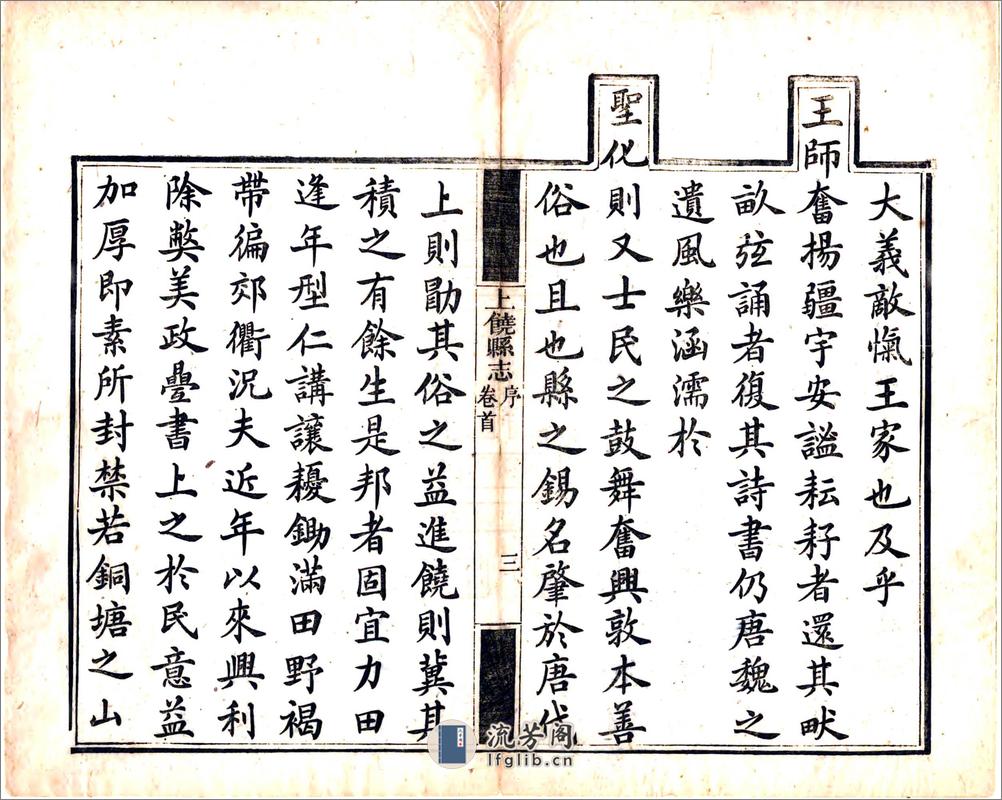 大義敵愾王家也及乎
王師奮揚疆宇安謐耘耔者還其畎
畝弦誦者復其詩書仍唐魏之
遺風樂涵濡於
聖化則又士民之鼓舞奮興敦本善
俗也且也縣之錫名肇於唐代
上饒縣志
序
卷首
三
上則勖其俗之益進饒則冀其
積之有餘生是邦者固宜力田
逢年型仁講讓耰鋤滿田野褐
帶徧郊衢況夫近年以來興利
除獘美政疊書上之於民意益
加厚即素所封禁若銅塘之山
流芳阁
lfglib.cn